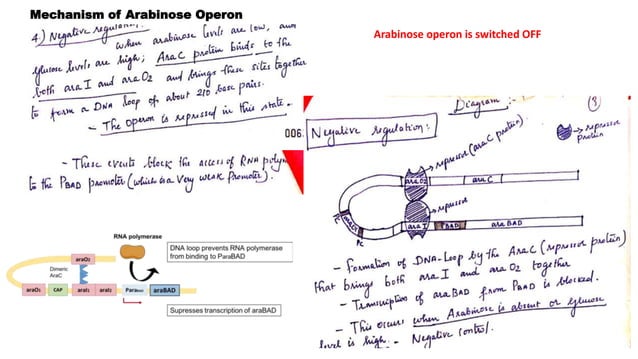 Mechanism of Arabinose Operon
4) Negative regulation:
When arabinose levels are low, and
glucose levels are high; AraC protein binds to the
both ara I and ara O2 and brings these sites together
to form a DNA loop of about 210 base pairs.
- The operon is repressed in this state.
- These events block the access of RNA poly
to the PBAD promoter (which is a very weak promoter).
Arabinose operon is switched OFF
Diagram :-
(3)
006.
Negative regulation:
→ repressor (ara C protein)
→ repressor
protein
ara O2
ara C
→ repressor
Pc
ara I
PBAD
ara BAD
- Formation of DNA-Loop by the Ara C (repressor protein)
that brings both ara I and ara O2 together
- Transcription of ara BAD from PBAD is blocked.
- This occurs when Arabinose is absent or glucose
level is high. - Negative control.
RNA polymerase
DNA loop prevents RNA polymerase
from binding to ParaBAD
araO2
Dimeric
AraC
araO1
CAP
araI1
araI2
ParaBAD
araBAD
Supresses transcription of araBAD